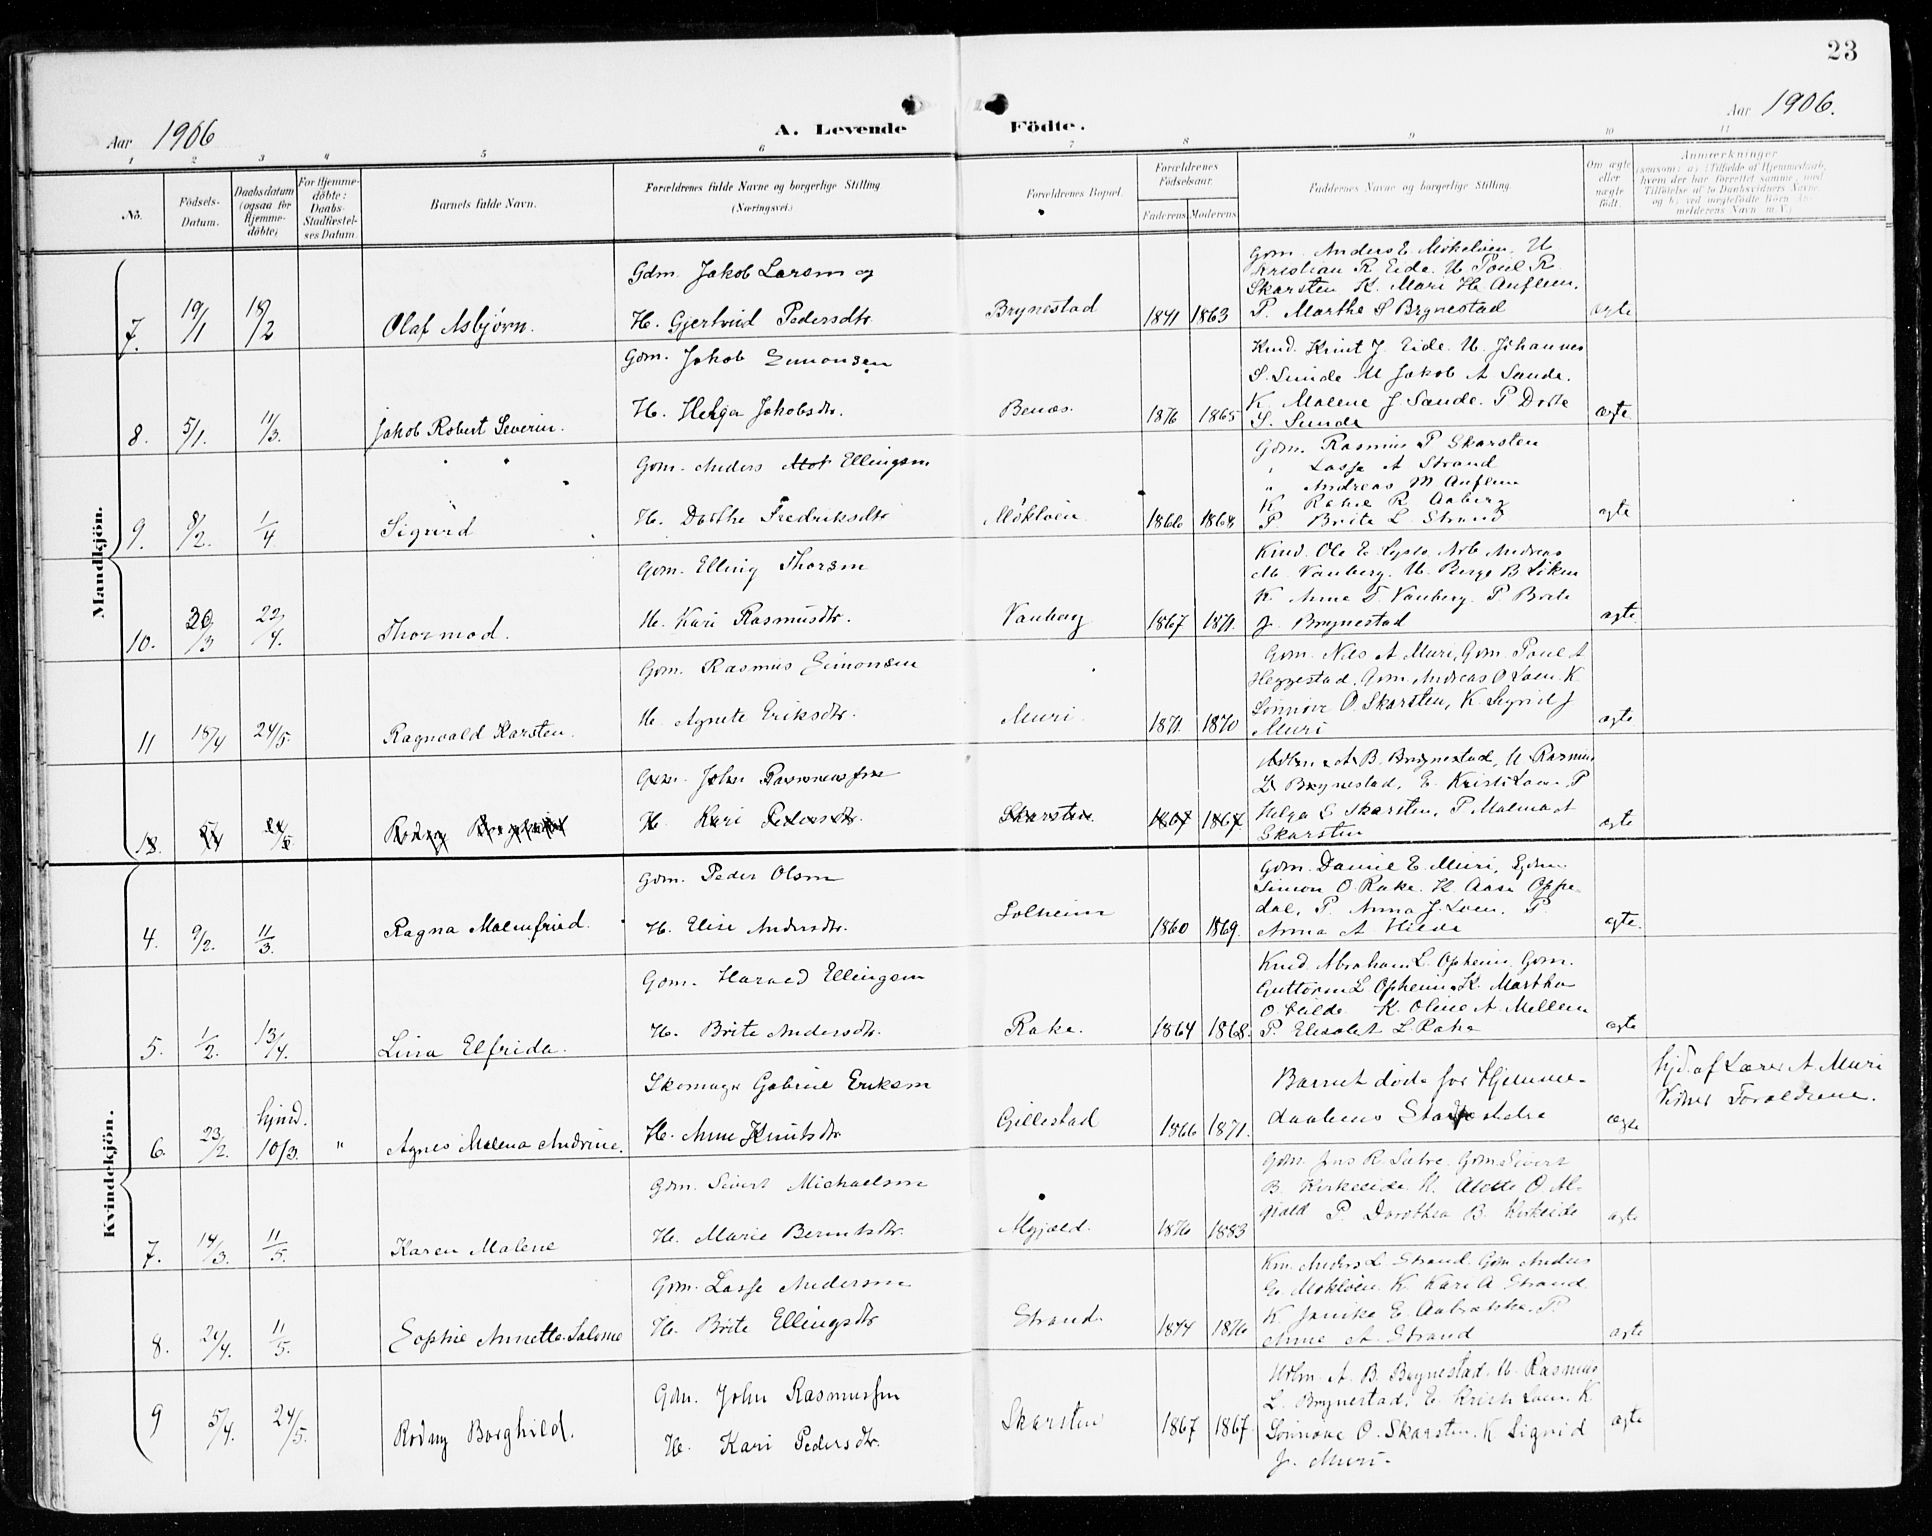 23
Aar 1906
A. Levende
Födte.
Aar 1906.
1 2 3 4 5 6 7 8 9 10 11
No.
Födsels-Datum.
Daabsdatum (ogsaa for Hjemme-döbte)
For Hjemme-döbte: Daabs-Stadfæstel-ses Datum.
Barnets fulde Navn.
Forældrenes fulde Navne og borgerlige Stilling (Næringsvei.)
Forældrenes Bopæl.
Forældrenes Födselsaar.
Faderens Moderens
Faddernes Navne og borgerlige Stilling.
Om ægte eller uægte födt.
Anmærkninger
Mandkjön.
Gdm. Jakob Larsen og
H. Gjertrud Pedersdtr.
7. 19/1 18/2 Olaf Asbjörn. Brynestad 1841 1863
Gdm. Anders E. Mökleöien. U
Kristian R. Eide. U Poul R.
Skarsten K. Mari H. Auflem.
P. Marthe S Brynestad
ægte
Gdm. Jakob Simonsen
H. Helga Jakobsdtr.
8. 5/1. 11/3. Jakob Robert Severin. Benæs. 1876 1865
Knud. Knut J. Eide. U. Johannes
S. Sunde U Jakob A Sande.
K. Malene J Sande. P Dorte
S. Sunde
ægte
Gdm. Anders Ellingsen
H. Dorthe Fredriksdtr
9. 8/2. 1/4 Sigurd Mökleöien 1866 1868
Gdm. Rasmus P Skarsten
" Lasse A Strand
" Andreas M Auflem
K Rakel R. Aaberg
P. Brite L Strand
ægte
Gdm. Elling Thorsen
H. Kari Rasmusdtr.
10. 30/3 22/4. Thormod. Vanberg 1867 1871.
M. Vanberg. U. Berge B. Löken
K. Anna T. Vanberg. P. Brite
J. Brynestad
ægte
Gdm. Rasmus Simonsen
H. Agnete Eriksdtr.
11 18/4 24/5. Ragnvald Karsten. Muri. 1871. 1870
Gdm. Nils A Muri, Gdm. Poul A
Heggestad, Gdm. Andreas O Loen. K
Sönnöve O. Skarsten, K. Sigrid J
Muri
ægte
Gdm. John Rasmussen
H. Kari Pedersdtr.
Rodny Borghild Skarsten. 1867 1867
A. B. Brynestad, U. Rasmus
L. Brynestad, E. Kristi Loen. P
Helga E Skarsten, P. Malena A
Skarsten
ægte
Kvindekjön.
Gdm. Peder Olsen
H. Elise Andersdtr.
4. 9/2. 11/3. Ragna Malenfried. Solheim 1860 1869.
Gdm. Daniel E. Muri,
Simon O. Rake. H. Aase Oppe-
dal, P. Anna J. Loen. P.
Anna A. Hilde
ægte.
Gdm. Harald Ellingsen
H. Brite Andersdtr.
5. 1/2. 13/4. Lina Elfrida. Rake. 1864 1868.
Knud. Abraham L. Opheim, Gdm.
Guttorm L Opheim, K. Martha
O. Hilde. K. Oline A. Mellem
P. Elisabet L Rake
ægte
Skomager Gabriel Eriksen
H. Anne Knutsdtr
6. 23/2. hjmd. 10/3. " Agnes Malena Andrine. Gillestad 1866 1871.
Barnet döde for Hjemme-
daabens Stadfæstelse
ægte
hjd. af Lærer A. Muri
Vidner Forældrene.
Gdm. Sivert Michaelsen
H. Marie Berntsdtr.
7. 14/3. 11/5. Karen Malene Mgjæld. 1876 1883
Gdm. Jens R. Sætre. Gdm. Sivert
B. Kirkeeide. H. Alette O. M-
gjæld P. Dorothea B. Kirkeide
ægte
Gdm. Lasse Andersen
H. Brite Ellingsdtr
8. 24/4. 11/5. Sophie Annette Salome Strand. 1874 1876
Knu. Anders L. Strand. Gdm. Anders
E. Mökleöien K. Kari A. Strand.
K. Janike E. Aabrække. P.
Anne A. Strand
ægte
Gdm. John Rasmussen
H. Kari Pedersdtr.
9 5/4. 24/5. Rodny Borghild. Skarsten 1867 1867.
A. B. Brynestad, U. Rasmus
L. Brynestad, E. Kristi Loen. K
Sönnöve O. Skarsten. K Sigrid
J. Muri.
ægte